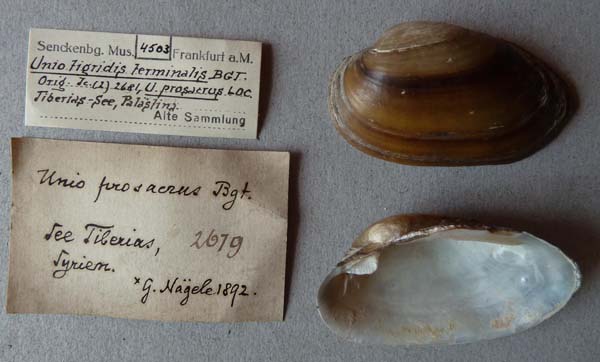 Senckenbg. Mus. 4503 Frankfurt a.M.
Unio tigridis terminalis BGT.
Orig. Ic. (2) 2681, U. prosacrus LOC.
Tiberias-See, Palästina.
Alte Sammlung
Unio prosacrus Bgt.
See Tiberias, 2679
Syrien.
*G. Nägele 1892.